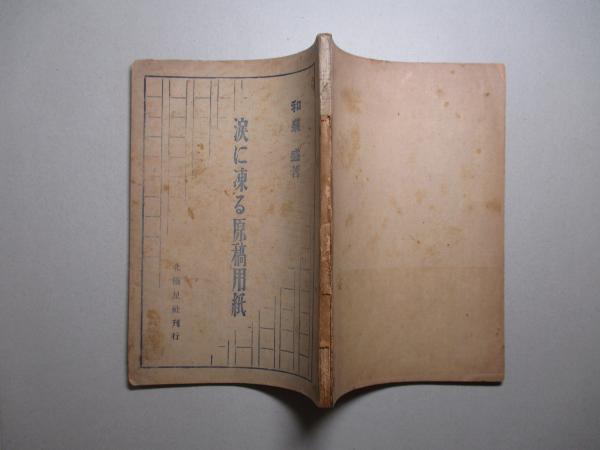 和泉 盛著
涙に凍る原稿用紙
北極星社刊行